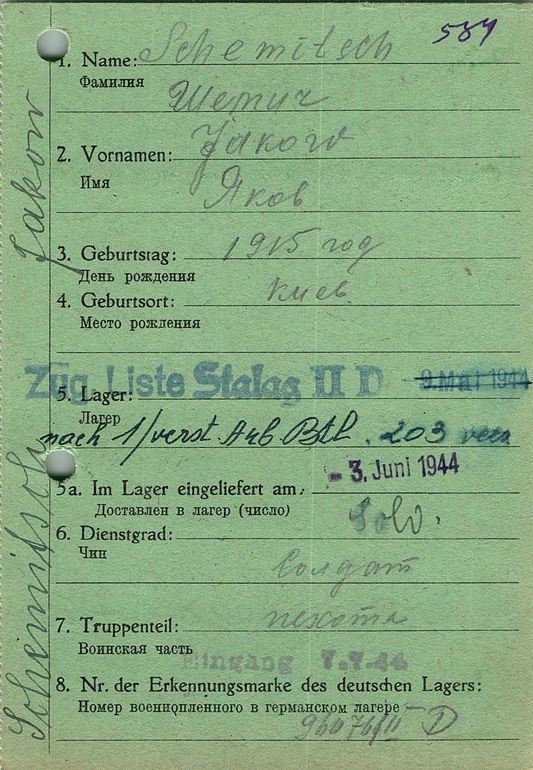 587
1. Name: Schemitsch
Фамилия
Шемич
2. Vornamen: Jakow
Имя
Яков
3. Geburtstag: 1915 год
День рождения
4. Geburtsort: Киев
Место рождения
Zug. Liste Stalag II D 9. Mai 1944
5. Lager:
Лагер
nach 1/verst. Arb. Btl. 203
- 3. Juni 1944
5a. Im Lager eingeliefert am:
Доставлен в лагер (число)
Sold.
6. Dienstgrad:
Чин
Солдат
7. Truppenteil: пехота
Воинская часть
Eingang 7.7.44
8. Nr. der Erkennungsmarke des deutschen Lagers:
Номер военнопленного в германском лагере
II D
Schemitsch Jakow